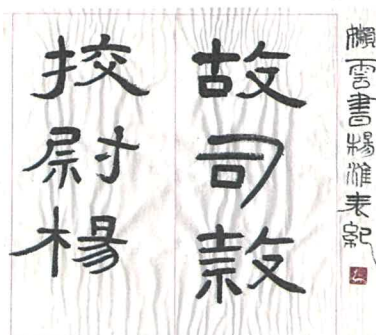 懶雲書楊淮表紀
故司隸
挍尉楊